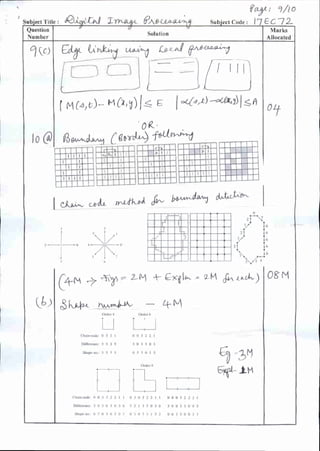 Page: 9/10
Subject Title: Digital Image Processing Subject Code: 17EC72
Question Number
Solution
Marks Allocated
9(c) Edge linking using Local processing
|M(s,t) - M(x,y)| ≤ E |α(s,t) - α(x,y)| ≤ A
04
OR
10 (a) Boundary (Border) following
chain code method for boundary detection
(4M → Figs = 2M + Expln = 2M for each)
08M
(b) Shape number — 4M
Order 4
Order 6
Chain code: 0 3 2 1
0 0 3 2 2 1
Difference: 3 3 3 3
3 0 3 3 0 3
Shape no.: 3 3 3 3
0 3 3 0 3 3
Order 8
Eg - 3M
Expl - 1M
Chain code:
Difference:
Shape no.: